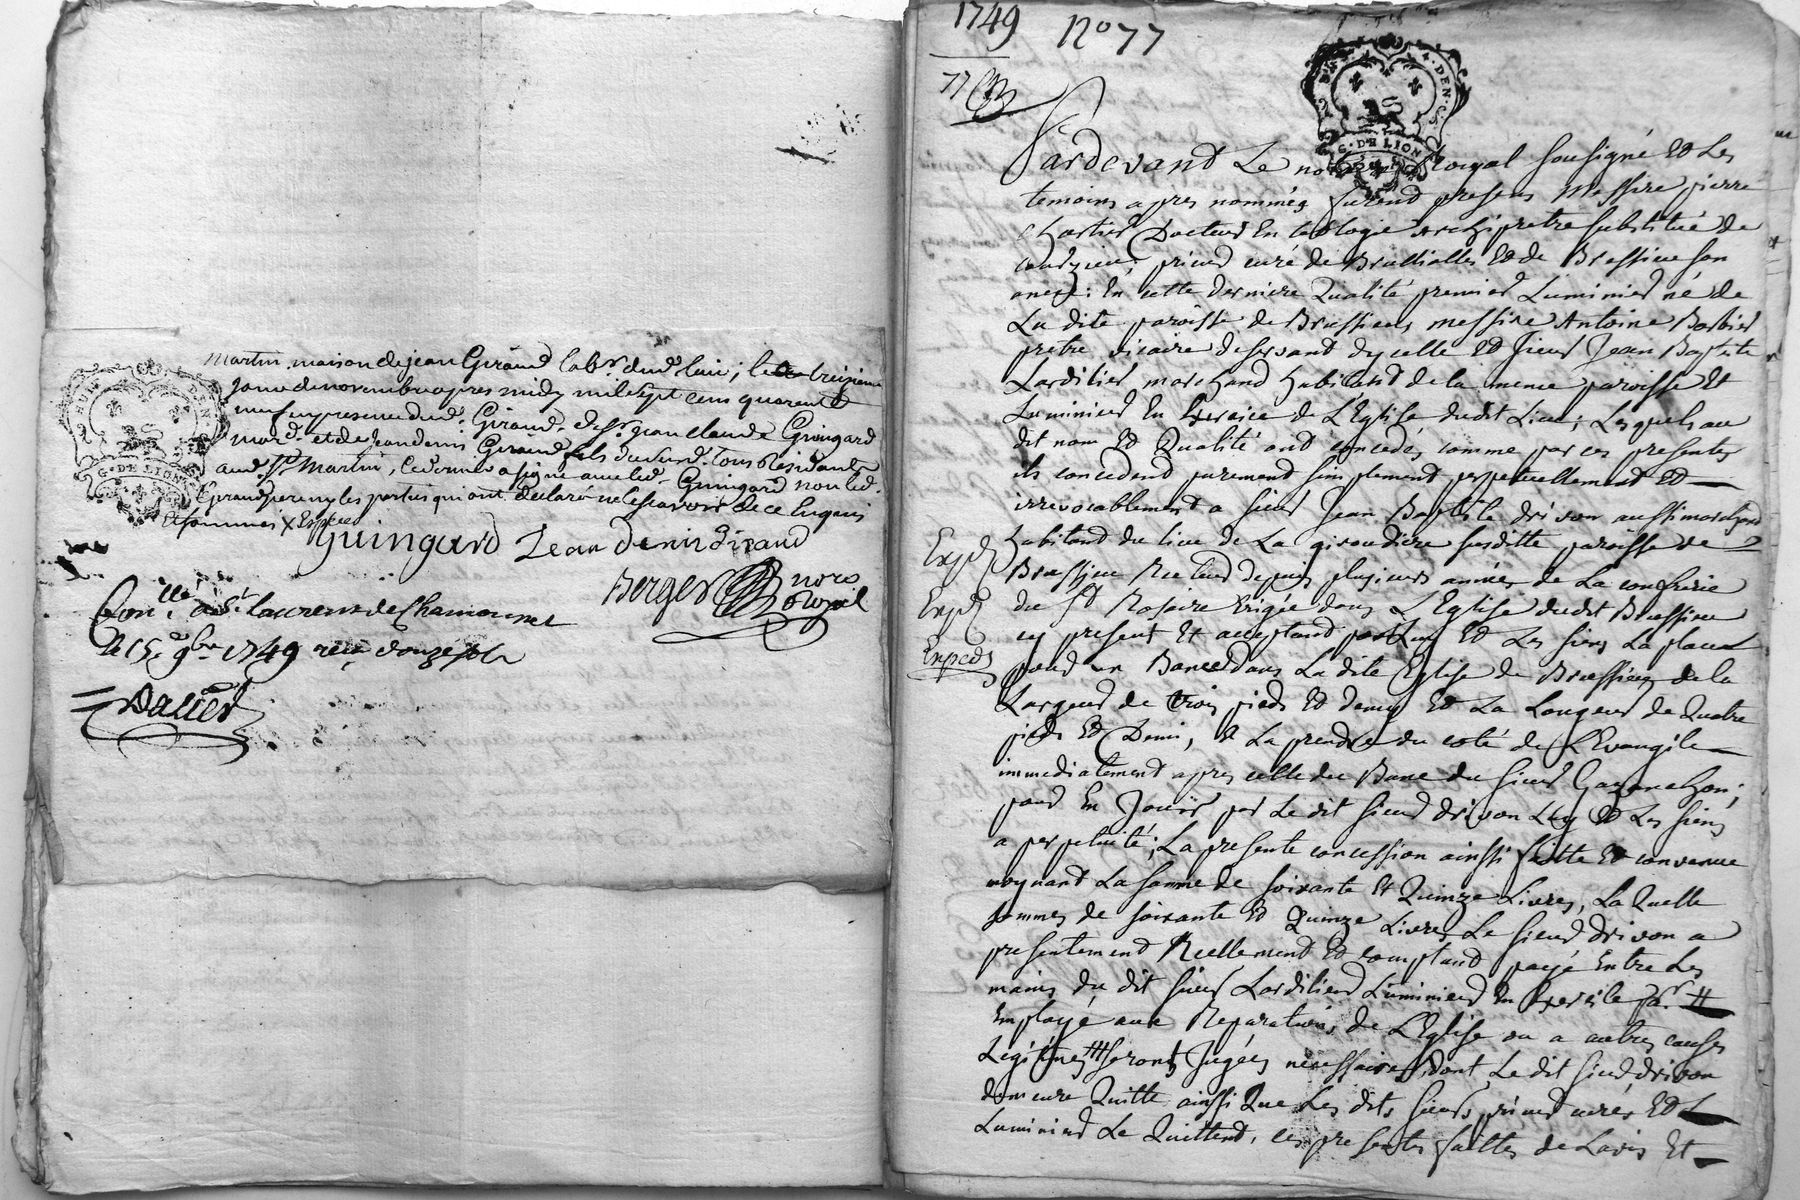 martin maison de jean Giraud lab.r dud. lieu, le treizieme
jour de novembre apres midy mil sept cens quarente
neuf en presence dud. Giraud, de s.r jean claude Guingard
mard. et de jean denis Giraud fils dud. tous residants
aud. S.t Martin, lesd. ont signé avec led. Guingard non led.
Giraud pere ny les parties qui ont declaré ne le scavoir de ce enquis
et sommés
Guingard Jean denis Giraud
Berger no.re royal
Con.llé a S.t laurent de Chamousset
le 15.e 9bre 1749 reçu douze sols
Dalier
G. DE LION
1749 No 77
77
G. DE LION
Pardevand Le notaire Royal sousigné Ed Les
temoins apres nommés furend presens Messire pierre
Chartier Docteur En teologie archipretre substitué de
courzieu, prieur curé de Brullialles Ed de Brussieu son
anexe; En cette derniere Qualité premier Luminier né de
La dite paroisse de Brussieux messire Antoine Barbier
pretre vicaire desservant dycelle Ed sieur Jean Baptiste
Lardilier marchand habitant de la meme paroisse Et
Luminier En Exercice de L'Eglise dudit Lieu; Lesquels au
dit nom Ed Qualité ont concedés comme par ces presentes
ils concedend purement simplement perpetuellement Ed
irrevocablement a sieur Jean Baptiste drivon aussi marchand
habitand du lieu de La giroudiere susditte paroisse de
Brussieu Recteur depuis plusieurs années de La confrerie
Exp.d
du S.t Rosaire Erigée dans L'Eglise dudit Brussieu
Exp.d
cy present Et acceptand pour Luy Ed Les siens La place
Expeds
pour un Banc dans La dite Eglise de Brussieux de la
Largeur de trois pieds Ed demy Ed La Longeur de Quatre
pieds Ed Demi, A La prendre du coté de L'Evangile
immediatement apres celle du Banc du sieur Gazanchon;
pour En Jouir par Le dit sieur drivon Luy Ed Les siens
a perpetuité; La presente concession ainsi faitte Ed convenue
moynant La somme de soixante Et Quinze Livres, La Quelle
sommes de soixante Ed Quinze Livres Le sieur drivon a
presentement Reellement Ed comptand payé Entre Les
mains du dit sieur Lardilier Luminier En Exercice p.r H
Employé aux Reparations de L'Eglise ou a autres causes
Legitimes seront Jugées necessaires, dont Le dit sieur drivon
demeure Quitte ainsi Que Les dits sieurs prieur curés Ed
Luminier Le Quittend, ces presentes faittes de Lavis Et